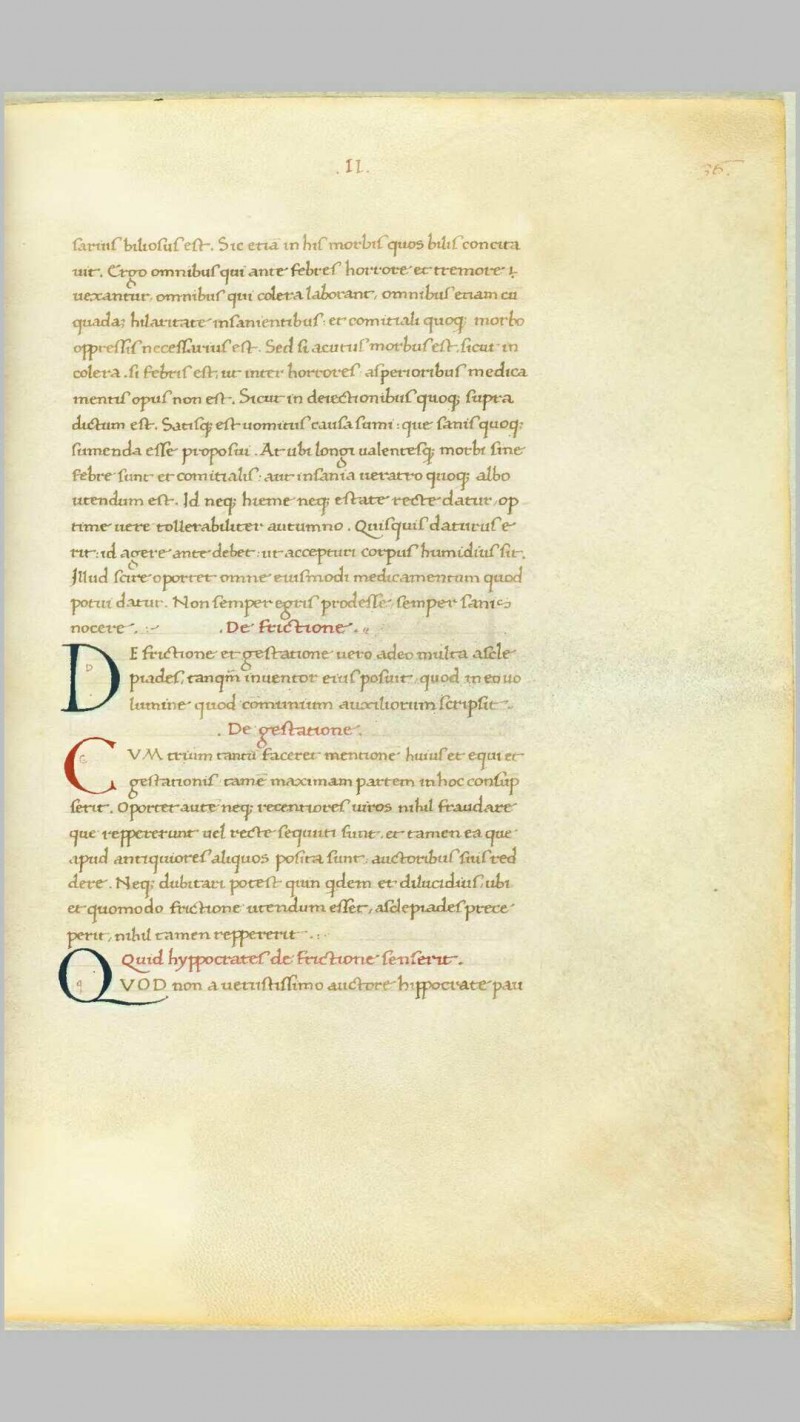 .II.
36.
sarius biliosus est. Sic etiā in his morbis quos bilis concita
uit. Ergo omnibus qui ante febres horrore et tremore
uexantur, omnibus qui colera laborant, omnibus etiam cū
quadaʒ hilaritate insanientibus: et comitiali quoqʒ morbo
oppressis necessarius est. Sed si acutus morbus est, sicut in
colera. si febris est, ut inter horrores asperioribus medica
mentis opus non est. Sicut in deiectionibus quoqʒ supra
dictum est. Satisqʒ est uomitus causa sumi: que sanis quoqʒ
sumenda esse proposui. At ubi longi ualentesqʒ morbi sine
febre sunt et comitialis: aut insania ueratro quoqʒ albo
utendum est. Id neqʒ hieme neqʒ estate recte datur, op
time uere tollerabiliter autumno. Quisquis daturus e
rit: id agere ante debet: ut accepturi corpus humidius sit.
Illud scire oportet omne eiusmodi medicamentum quod
potui datur. Non semper egris prodesse semper sanis
nocere. .De frictione.
D
DE frictione et gestatione uero adeo multa ascle
piades, tanqm̄ inuentor eius posuit, quod in eo uo
lumine quod comunium auxiliorum scripsit.
. De gestatione.
c
CVM trium tantū faceret mentione huius et equi et
gestationis tamē maximam partem in hoc consup
serit. Oportet autē neqʒ recentiores uiros nihil fraudare
que reppererunt uel recte sequuti sunt, et tamen ea que
apud antiquiores aliquos posita sunt, auctoribus suis red
dere. Neqʒ dubitari potest quin qdem et dilucidius, ubi
et quomodo frictione utendum esset, asclepiades prece
perit, nihil tamen reppererit.
Quid hyppocrates de frictione senserit.
q
QVOD non a uetustissimo auctore hippocrate pau